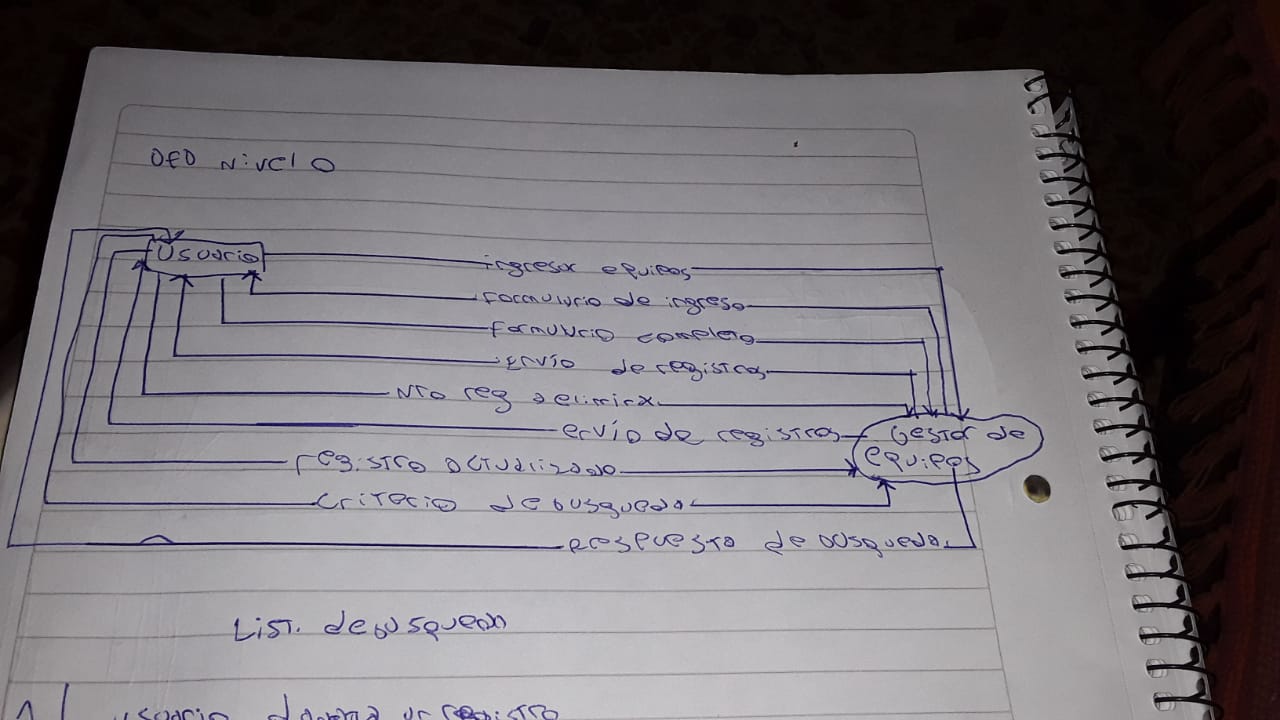 DFD Nivel 0
Usuario
ingresar equipos
formulario de ingreso
formulario completo
envío de registros
Nro reg a eliminar
envío de registros
Gestor de
equipos
registro actualizado
criterio de busqueda
respuesta de busqueda
List. de busqueda
usuario registro